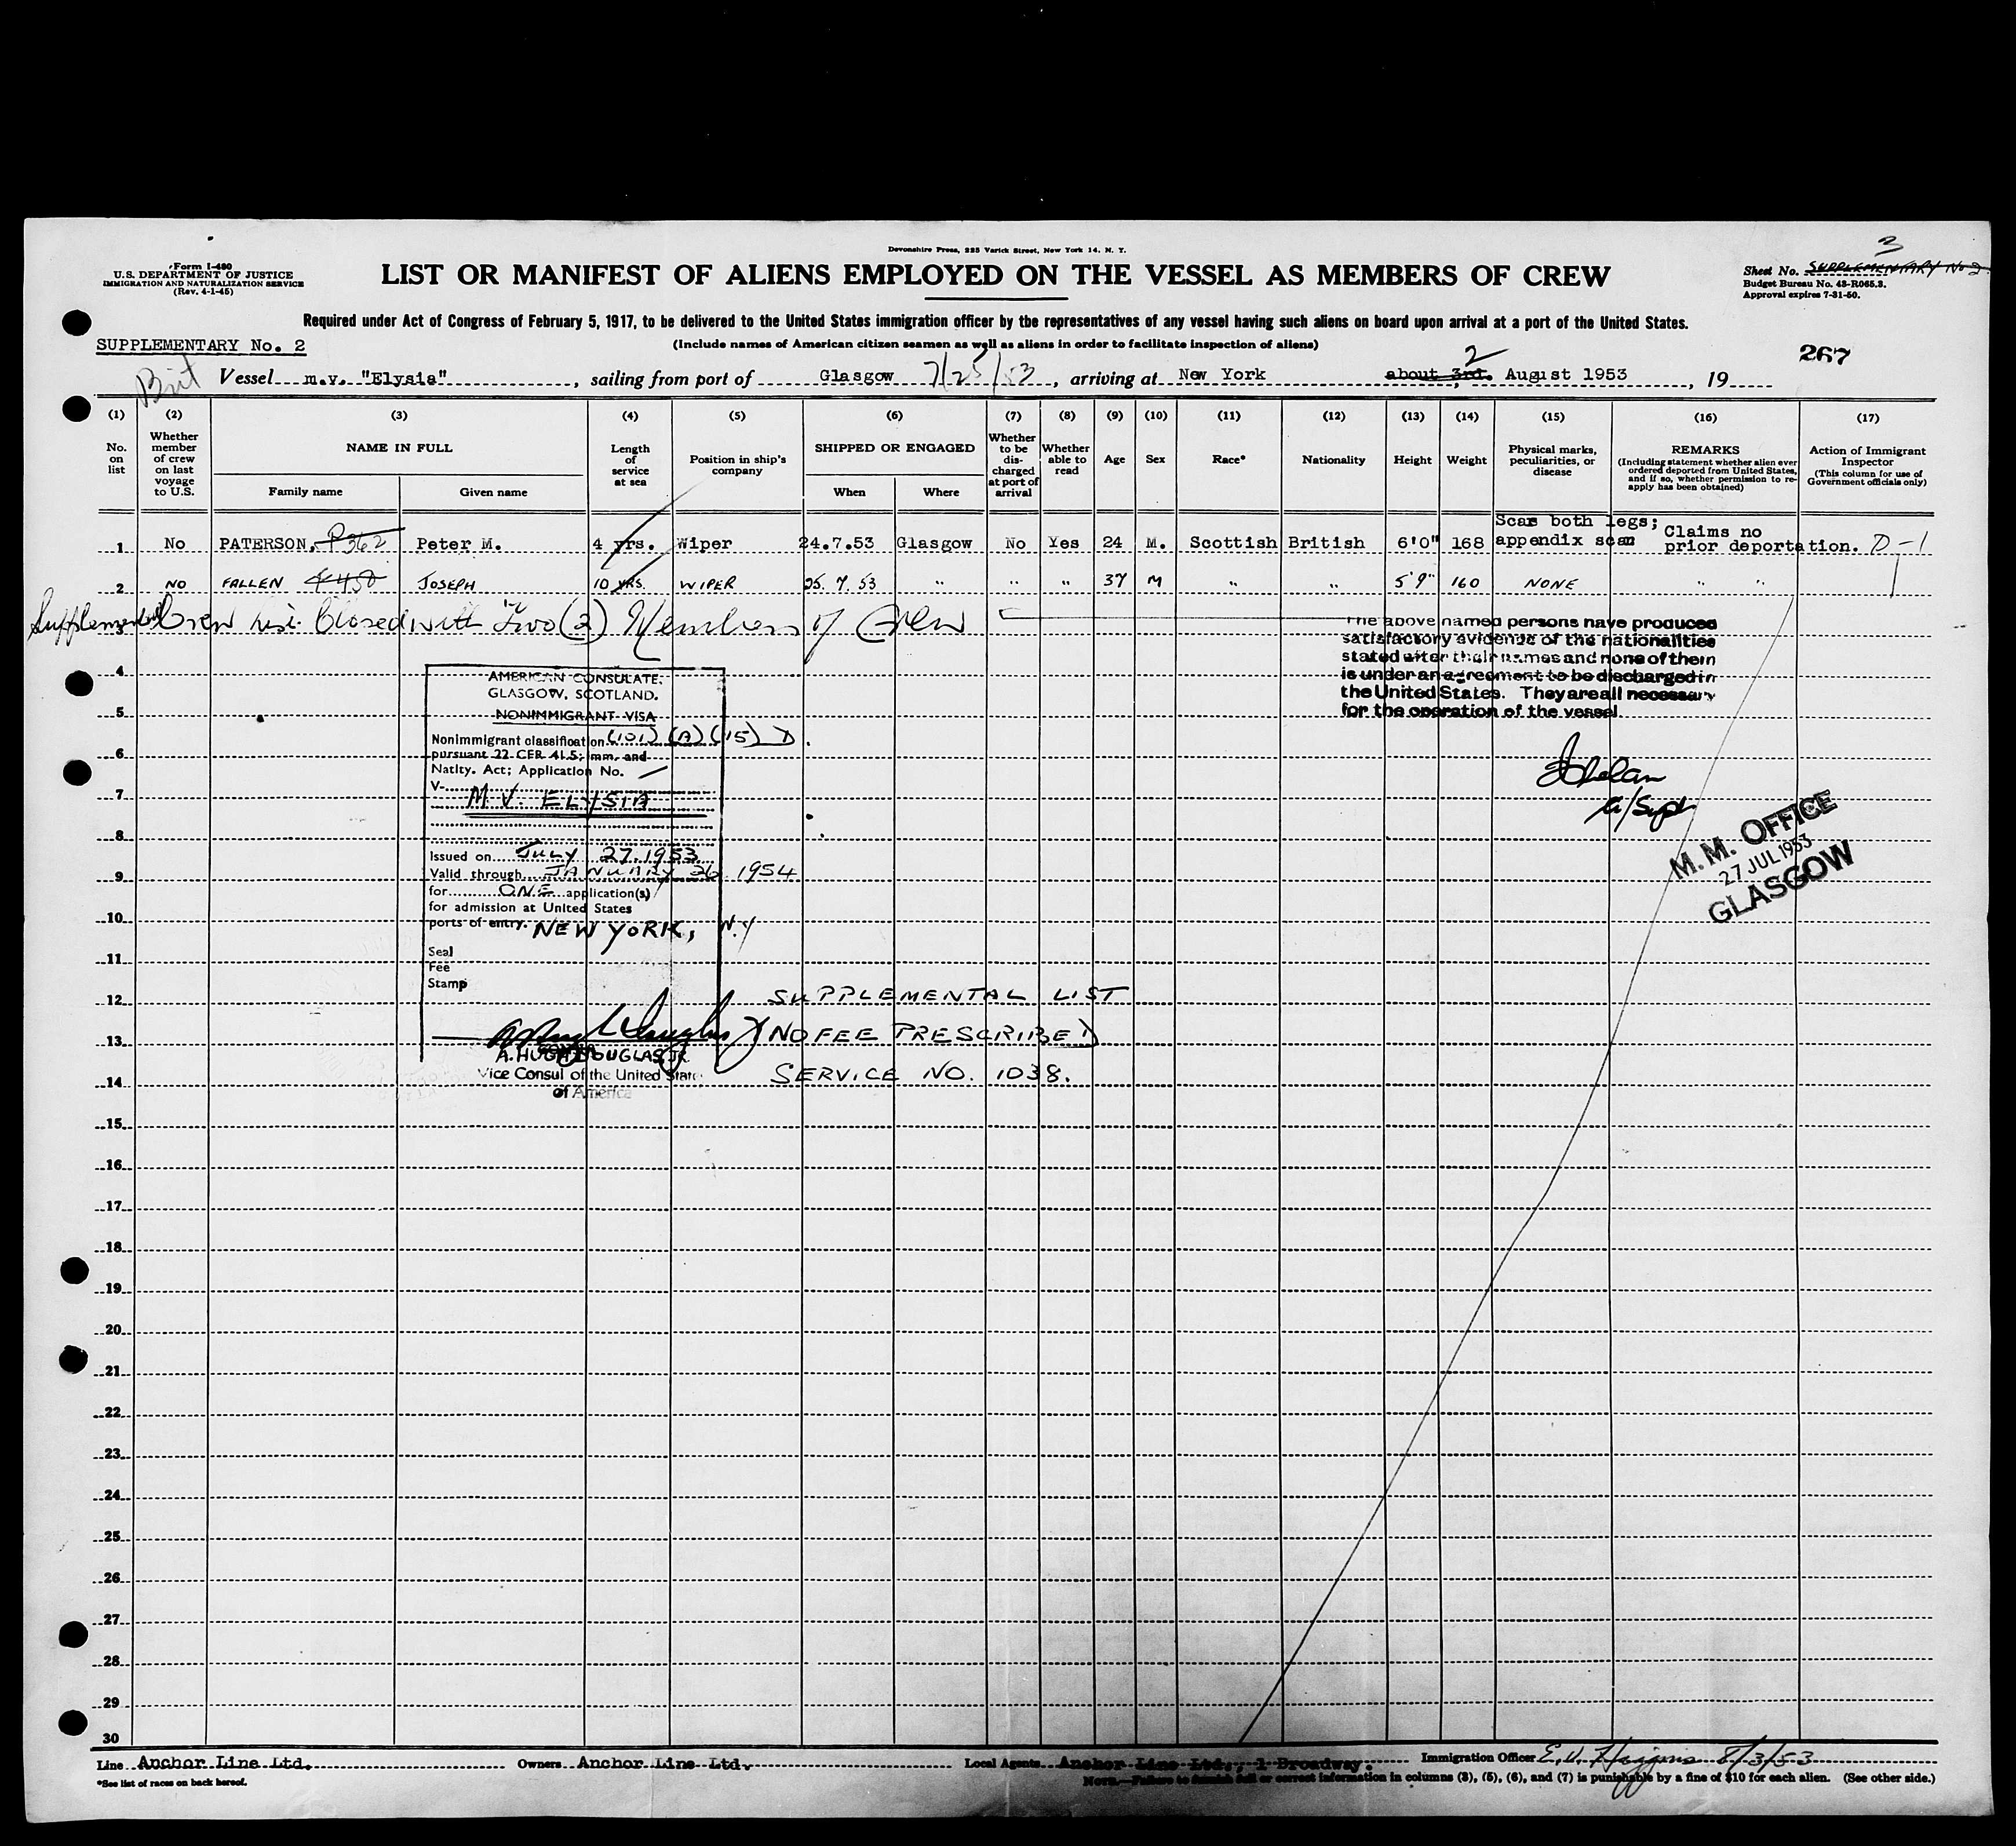 Devonshire Press, 225 Varick Street, New York 14, N. Y.
Form I-480
U.S. DEPARTMENT OF JUSTICE
IMMIGRATION AND NATURALIZATION SERVICE
(Rev. 4-1-45)
LIST OR MANIFEST OF ALIENS EMPLOYED ON THE VESSEL AS MEMBERS OF CREW
3
Sheet No. SUPPLEMENTARY No 2.
Budget Bureau No. 43-R065.3.
Approval expires 7-31-50.
Required under Act of Congress of February 5, 1917, to be delivered to the United States immigration officer by the representatives of any vessel having such aliens on board upon arrival at a port of the United States.
SUPPLEMENTARY No. 2
(Include names of American citizen seamen as well as aliens in order to facilitate inspection of aliens)
267
Brit Vessel m.v. "Elysia", sailing from port of Glasgow 7/25/53, arriving at New York about 3rd. 2 August 1953, 19
(1) (2) (3) (4) (5) (6) (7) (8) (9) (10) (11) (12) (13) (14) (15) (16) (17)
No. on list
Whether member of crew on last voyage to U.S.
NAME IN FULL
Family name Given name
Length of service at sea
Position in ship's company
SHIPPED OR ENGAGED
When Where
Whether to be discharged at port of arrival
Whether able to read
Age
Sex
Race*
Nationality
Height
Weight
Physical marks, peculiarities, or disease
REMARKS
(Including statement whether alien ever ordered deported from United States, and if so, whether permission to re-apply has been obtained)
Action of Immigrant Inspector
(This column for use of Government officials only)
1 No PATERSON, P 362 Peter M. 4 yrs. Wiper 24.7.53 Glasgow No Yes 24 M. Scottish British 6'0" 168 Scar both legs; appendix scan Claims no prior deportation. D-1
2 NO FALLEN 450 JOSEPH 10 YRS. WIPER 25.7.53 " " " 37 M " " 5'9" 160 NONE " "
Supplemental Crew List Closed with Two (2) Members of Crew
The above named persons have produced
satisfactory evidence of the nationalities
stated after their names and none of them
is under an agreement to be discharged in
the United States. They are all necessary
for the operation of the vessel
a/Supt
M. M. OFFICE
27 JUL 1953
GLASGOW
AMERICAN CONSULATE.
GLASGOW, SCOTLAND.
NONIMMIGRANT VISA
Nonimmigrant classification (101) (A) (15) D.
pursuant 22 CFR 41.5; Imm. and
Natlty. Act; Application No. —
V-
M.V. ELYSIA
Issued on JULY 27.1953
Valid through JANUARY 26 1954
for ONE application(s)
for admission at United States
ports of entry. NEW YORK, N.Y
Seal
Fee
Stamp
A. HUGH DOUGLAS JR.
Vice Consul of the United States
of America
SUPPLEMENTAL LIST
(NO FEE PRESCRIBED)
SERVICE NO. 1038.
3
4
5
6
7
8
9
10
11
12
13
14
15
16
17
18
19
20
21
22
23
24
25
26
27
28
29
30
Line Anchor Line Ltd. Owners Anchor Line Ltd. Local Agents Anchor Line Ltd., 1 Broadway. Immigration Officer E.V. Higgins 8/3/53
*See list of races on back hereof.
NOTE.—Failure to furnish full or correct information in columns (3), (5), (6), and (7) is punishable by a fine of $10 for each alien. (See other side.)